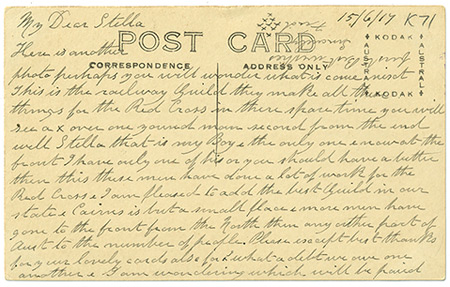 15/6/17 K71
My Dear Stella
POST CARD
KODAK
AUSTRALIA
KODAK
AUSTRALIA
CORRESPONDENCE
ADDRESS ONLY
Here is another
photo perhaps you will wonder what is come next
This is the railway Guild they make all the
things for the Red Cross in there spare time you will
see a x over one young man second from the end
well Stella that is my Boy & the only one & now at the
front I have only one of his or you should have a better
then this these men have done a lot of work for the
Red Cross & I am pleased to add the best Guild in our
state & Cairns is but a small place & more men have
gone to the front from the North then any other part of
Aust to the number of people. Please except best thanks
for your lovely cards also for what a debt we owe one
another & I am wondering which will be paid